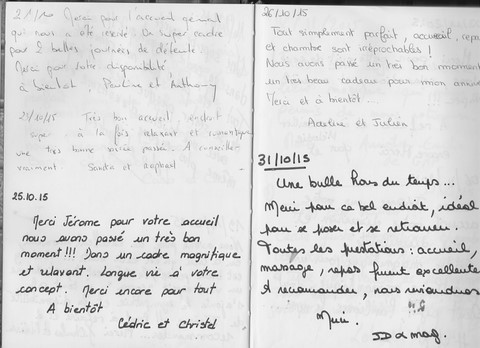 2/10 Merci pour l'accueil génial
qui nous a été réservé. Un super cadre
pour 2 belles journées de détente.
Merci pour votre disponibilité
à bientôt. Pauline et Anthony
21/10/15 Très bon accueil, endroit
super à la fois relaxant et romantique
une très bonne soirée passée. A conseiller
vraiment Sandra et Raphael
25.10.15
Merci Jérome pour votre accueil
nous avons passé un très bon
moment!!! Dans un cadre magnifique
et relaxant. Longue vie à votre
concept. Merci encore pour tout
A bientôt
Cédric et Christel
26/10/15
Tout simplement parfait, accueil, repas
et chambre sont irréprochables !
Nous avons passé un très bon moment
un très beau cadeau pour mon anniv
Merci et à bientôt.
Adeline et Julien
31/10/15
Une bulle hors du temps...
Merci pour ce bel endroit, idéal
pour se poser et se retrouver.
Toutes les prestations : accueil,
massage, repas furent excellentes
A recommander, nous reviendrons
!!
Merci.